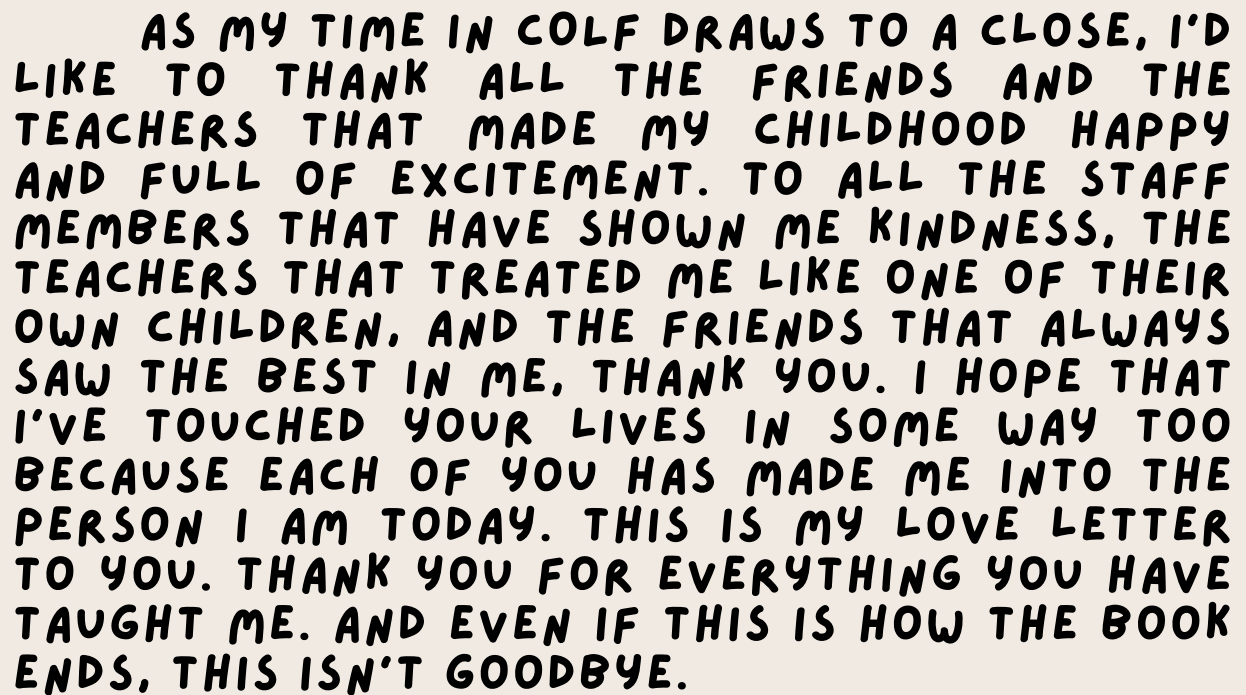 AS MY TIME IN COLF DRAWS TO A CLOSE, I'D
LIKE TO THANK ALL THE FRIENDS AND THE
TEACHERS THAT MADE MY CHILDHOOD HAPPY
AND FULL OF EXCITEMENT. TO ALL THE STAFF
MEMBERS THAT HAVE SHOWN ME KINDNESS, THE
TEACHERS THAT TREATED ME LIKE ONE OF THEIR
OWN CHILDREN, AND THE FRIENDS THAT ALWAYS
SAW THE BEST IN ME, THANK YOU. I HOPE THAT
I'VE TOUCHED YOUR LIVES IN SOME WAY TOO
BECAUSE EACH OF YOU HAS MADE ME INTO THE
PERSON I AM TODAY. THIS IS MY LOVE LETTER
TO YOU. THANK YOU FOR EVERYTHING YOU HAVE
TAUGHT ME. AND EVEN IF THIS IS HOW THE BOOK
ENDS, THIS ISN'T GOODBYE.